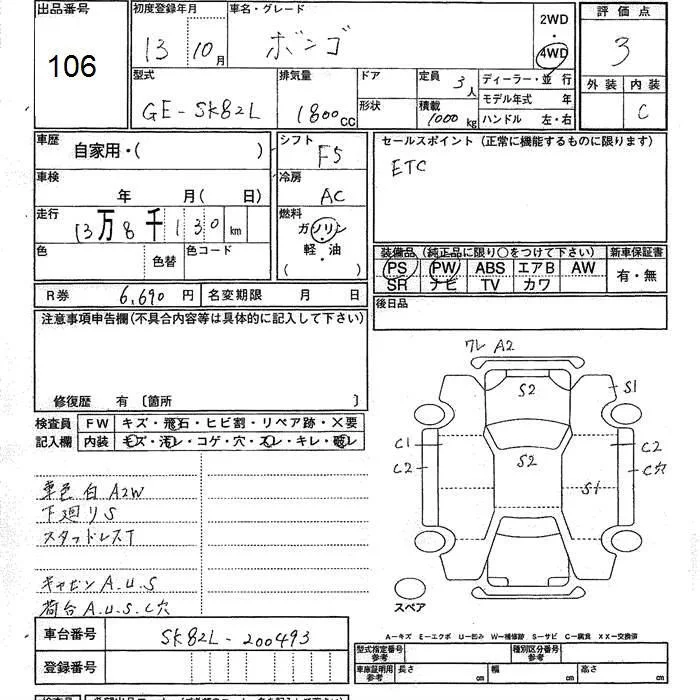 出品番号
106
初度登録年月
13 10月
車名・グレード
ボンゴ
2WD
・
4WD
評価点
3
外装 内装
C
型式
GE-SK82L
排気量
1800cc
ドア
形状
定員 3人
積載 1000kg
ディーラー・並行
モデル年式 年
ハンドル 左・右
車歴
自家用・( )
シフト
F5
セールスポイント(正常に機能するものに限ります)
ETC
車検
年 月( 日)
冷房
AC
走行
13万8千130km
燃料
ガソリン
・
軽・油
( )
色
色替
色コード
装備品(純正品に限り○をつけて下さい)
新車保証書
PS PW ABS エアB AW
SR ナビ TV カワ
有・無
R券 6,690円
名変期限 月 日
後日品
注意事項申告欄(不具合内容等は具体的に記入して下さい)
修復歴 有 〔箇所 〕
検査員
記入欄
FW キズ・飛石・ヒビ割・リペア跡・×要
内装 キズ・汚レ・コゲ・穴・スレ・キレ・破レ
車色 白 A2W
下廻り S
スタッドレスT
キャビン A.U.S
荷台 A.U.S C穴
ワレ A2
S2
S1
C1
C2
S2
C2
C穴
S1
スペア
A-キズ E-エクボ U-凹み W-補修跡 S-サビ C-腐食 XX-交換済
車台番号
SK82L-200493
登録番号
型式指定番号
参考
種別区分番号
参考
車庫証明用
参考
長さ cm
幅 cm
高さ cm